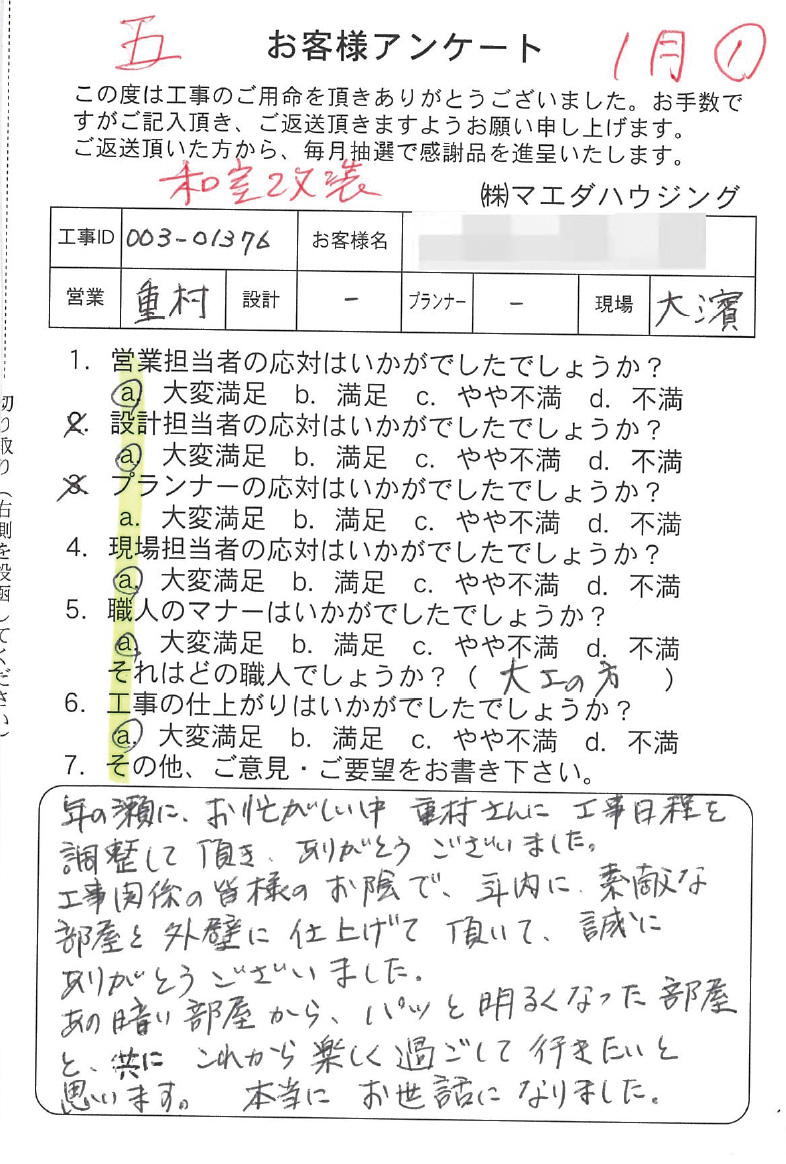 五 お客様アンケート 1月①
この度は工事のご用命を頂きありがとうございました。お手数で
すがご記入頂き、ご返送頂きますようお願い申し上げます。
ご返送頂いた方から、毎月抽選で感謝品を進呈いたします。
和室改装 ㈱マエダハウジング
工事ID 003-01376 お客様名
営業 重村 設計 - プランナー - 現場 大濱
1. 営業担当者の応対はいかがでしたでしょうか？
a. 大変満足 b. 満足 c. やや不満 d. 不満
2. 設計担当者の応対はいかがでしたでしょうか？
a. 大変満足 b. 満足 c. やや不満 d. 不満
3. プランナーの応対はいかがでしたでしょうか？
a. 大変満足 b. 満足 c. やや不満 d. 不満
4. 現場担当者の応対はいかがでしたでしょうか？
a. 大変満足 b. 満足 c. やや不満 d. 不満
5. 職人のマナーはいかがでしたでしょうか？
a. 大変満足 b. 満足 c. やや不満 d. 不満
それはどの職人でしょうか？（ 大工の方 ）
6. 工事の仕上がりはいかがでしたでしょうか？
a. 大変満足 b. 満足 c. やや不満 d. 不満
7. その他、ご意見・ご要望をお書き下さい。
年の瀬に、お忙がしい中 重村さんに 工事日程を
調整して頂き、ありがとうございました。
工事関係の皆様のお陰で、年内に、素敵な
部屋と外壁に仕上げて頂いて、誠に
ありがとうございました。
あの暗い部屋から、パッと明るくなった部屋
と、共に これから楽しく過ごして行きたいと
思います。 本当に お世話になりました。
切り取り（右側を投函してください）